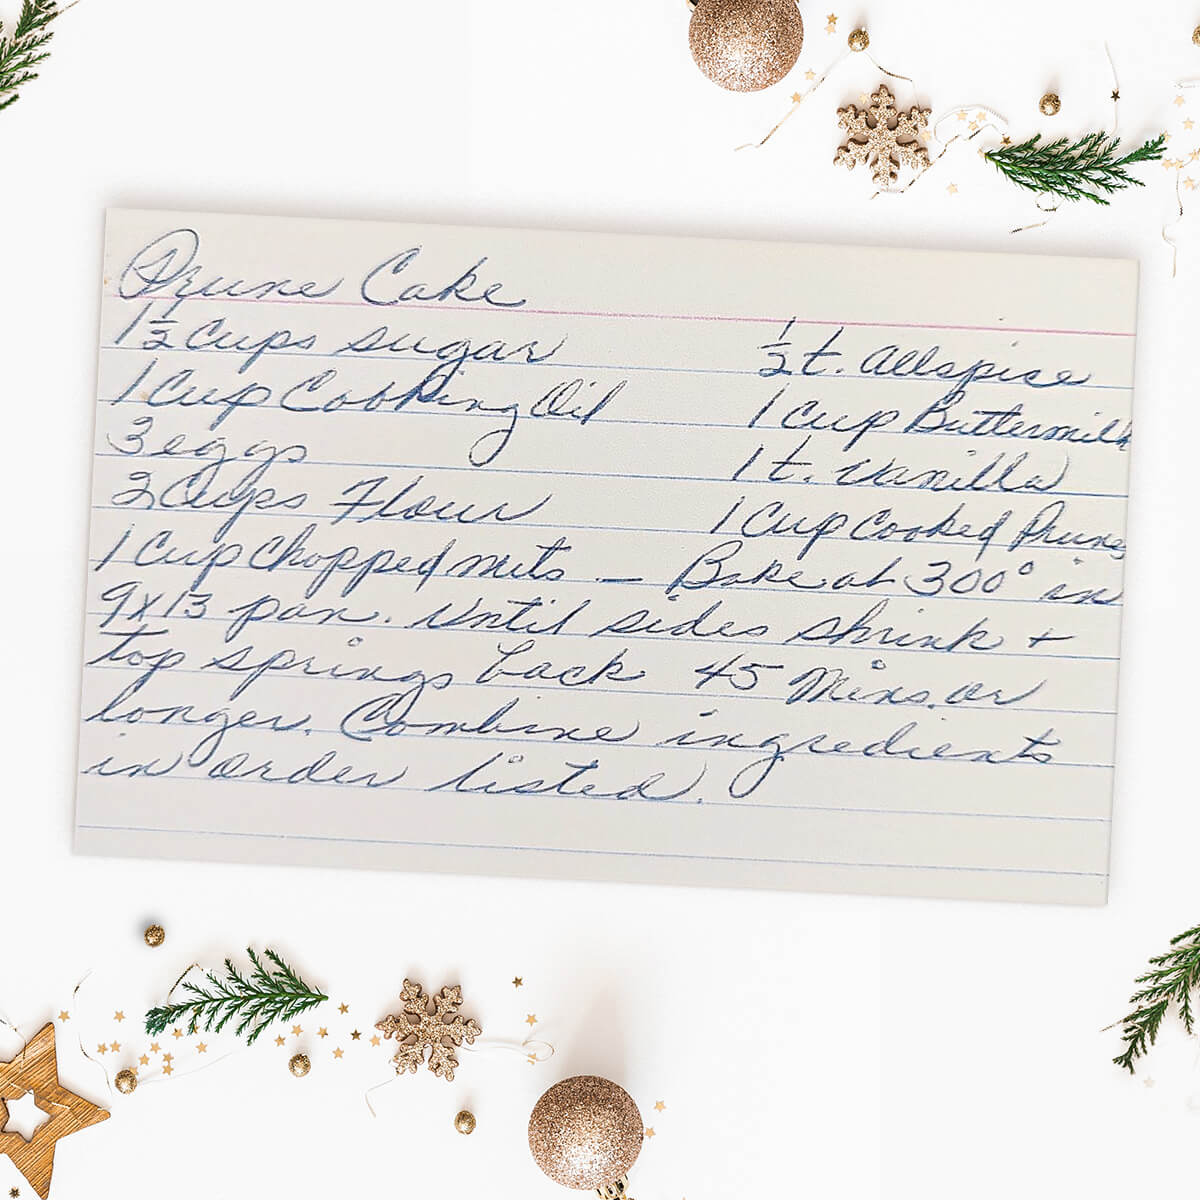 Prune Cake
1 1/2 Cups sugar 1/2 t. Allspice
1 Cup Cooking Oil 1 Cup Buttermilk
3 eggs 1 t. Vanilla
2 Cups Flour 1 Cup Cooked Prunes
1 Cup Chopped nuts — Bake at 300° in
9x13 pan. Until sides shrink +
top springs back 45 Mins. or
longer. Combine ingredients
in order listed.